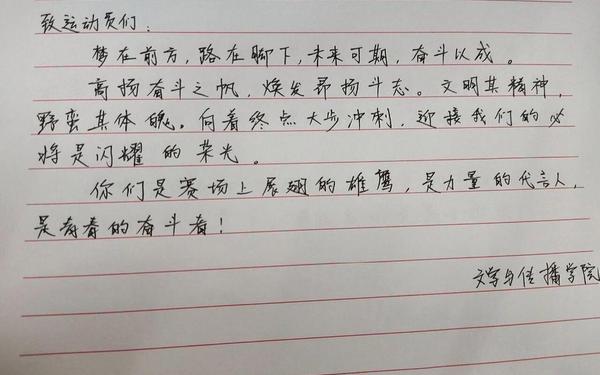 致运动员们：
梦在前方，路在脚下，未来可期，奋斗以成。
高扬奋斗之帆，焕发昂扬斗志。文明其精神，
野蛮其体魄。向着终点大步冲刺，迎接我们的
将是闪耀的荣光。
你们是赛场上展翅的雄鹰，是力量的代言人，
是青春的奋斗者！
文学与传播学院